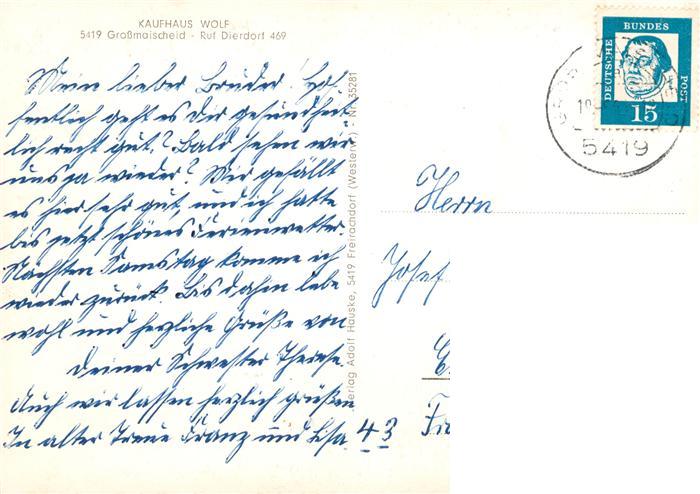 KAUFHAUS WOLF
5419 Großmaischeid - Ruf Dierdorf 469
Mein lieber Bruder! Hof-
fentlich geht es Dir gesundheit-
lich recht gut? Bald sehen wir
uns ja wieder? Mir gefällt
es hier sehr gut, und ich hatte
bis jetzt schönes Ferienwetter.
Nächsten Samstag komme ich
wieder zurück. Bis dahin lebe
wohl und herzliche Grüße von
Deiner Schwester Therese.
Auch wir lassen herzlich grüßen
In alter Treue Franz und Lisa
Verlag Adolf Hauske, 5419 Freirachdorf (Westerw.) - Nr. 35281
DEUTSCHE BUNDES POST
15
5419
Herrn
Josef
43